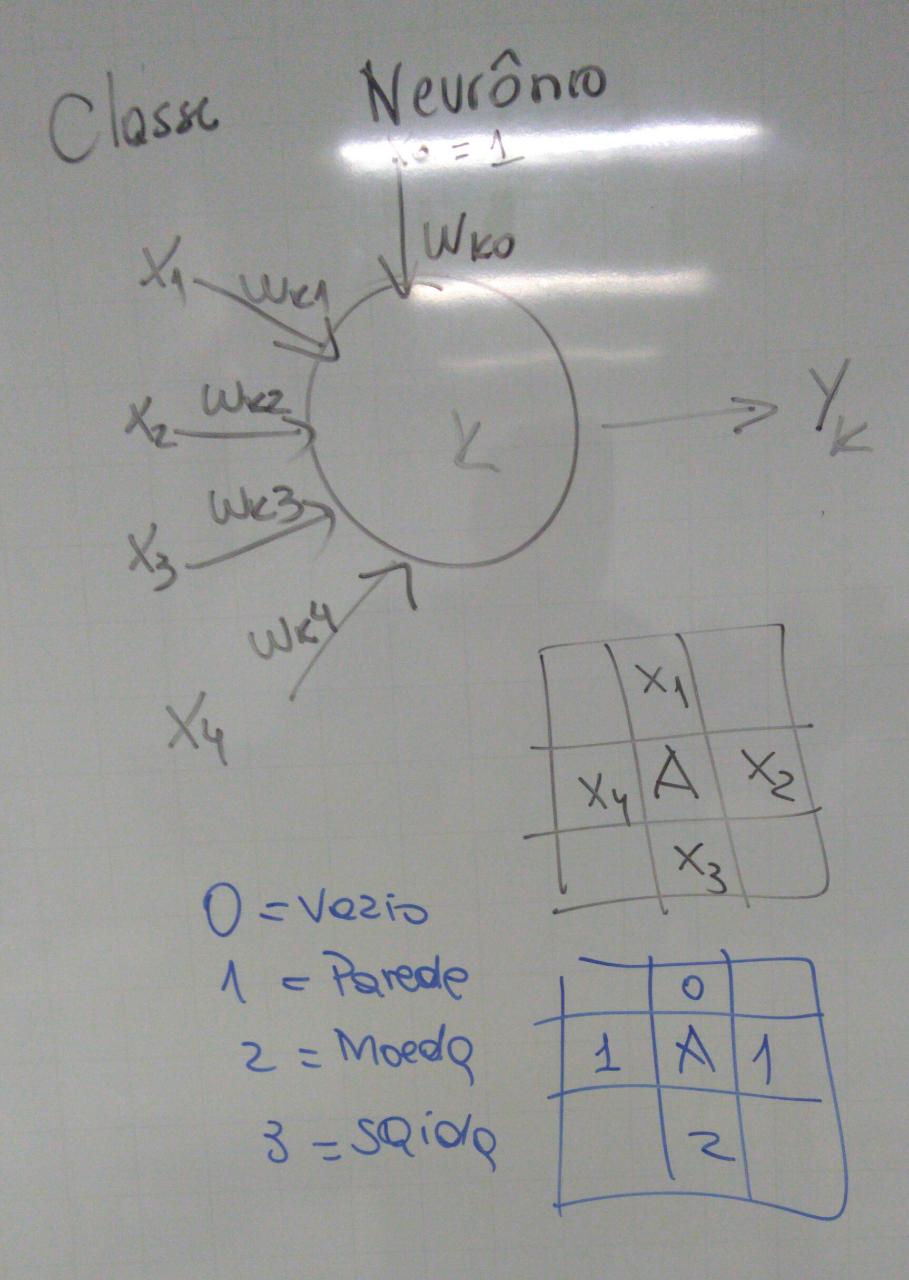 Classe Neurônio
X0 = 1
WK0
X1 WK1
X2 WK2
X3 WK3
X4 WK4
K
YK
X1
X4 A X2
X3
0 = Vazio
1 = Parede
2 = Moeda
3 = Saida
0
1 A 1
2